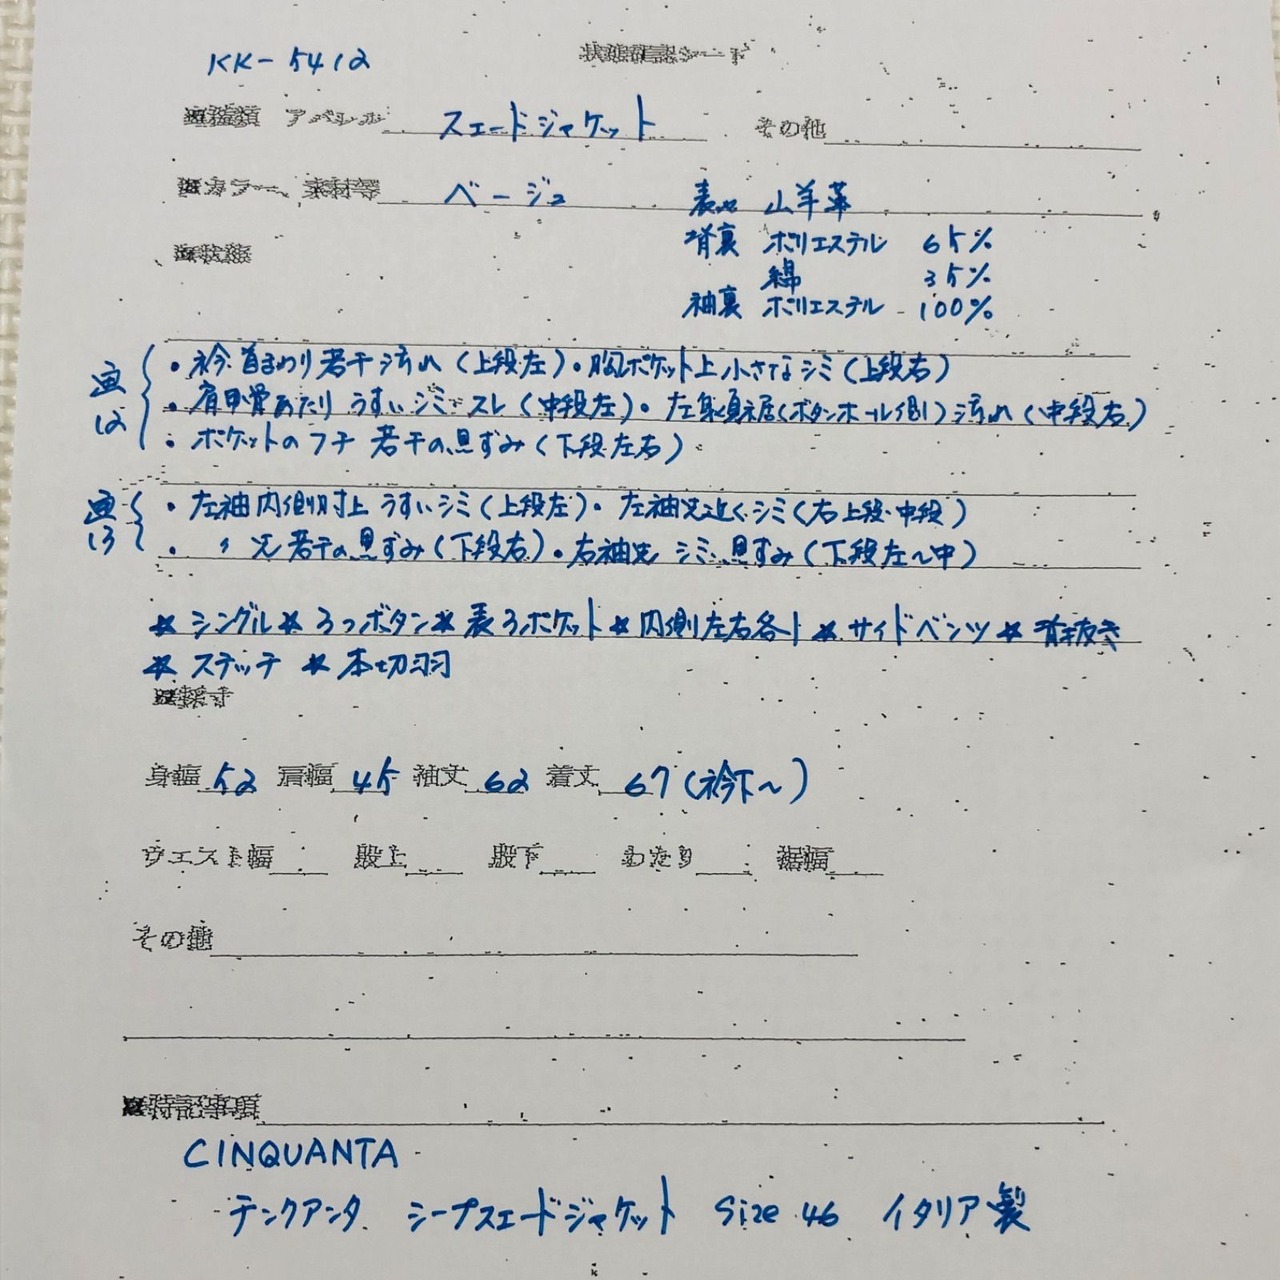 KK-5412
状態確認シート
※種類 アパレル スエードジャケット その他
※カラー、素材等 ベージュ 表地 山羊革
背裏 ポリエステル 65%
※状態
綿 35%
袖裏 ポリエステル 100%
画12
・衿首まわり若干汚れ(上段左)・胸ポケット上小さなシミ(上段右)
・肩甲骨あたりうすいシミ、スレ(中段左)・左身頃裾(ボタンホール側)汚れ(中段右)
・ポケットのフチ 若干の黒ずみ(下段左右)
画13
・左袖内側肘上うすいシミ(上段左)・左袖先近くシミ(右上段・中段)
・〃先若干の黒ずみ(下段右)・右袖先 シミ、黒ずみ(下段左~中)
★シングル★3つボタン★表3ポケット★内側左右各1★サイドベンツ★背抜き
★ステッチ ★本切羽
※採寸
身幅 52 肩幅 45 袖丈 62 着丈 67(衿下~)
ウエスト幅 股上 股下 わたり 裾幅
その他
※特記事項
CINQUANTA
チンクアンタ シープスエードジャケット Size 46 イタリア製